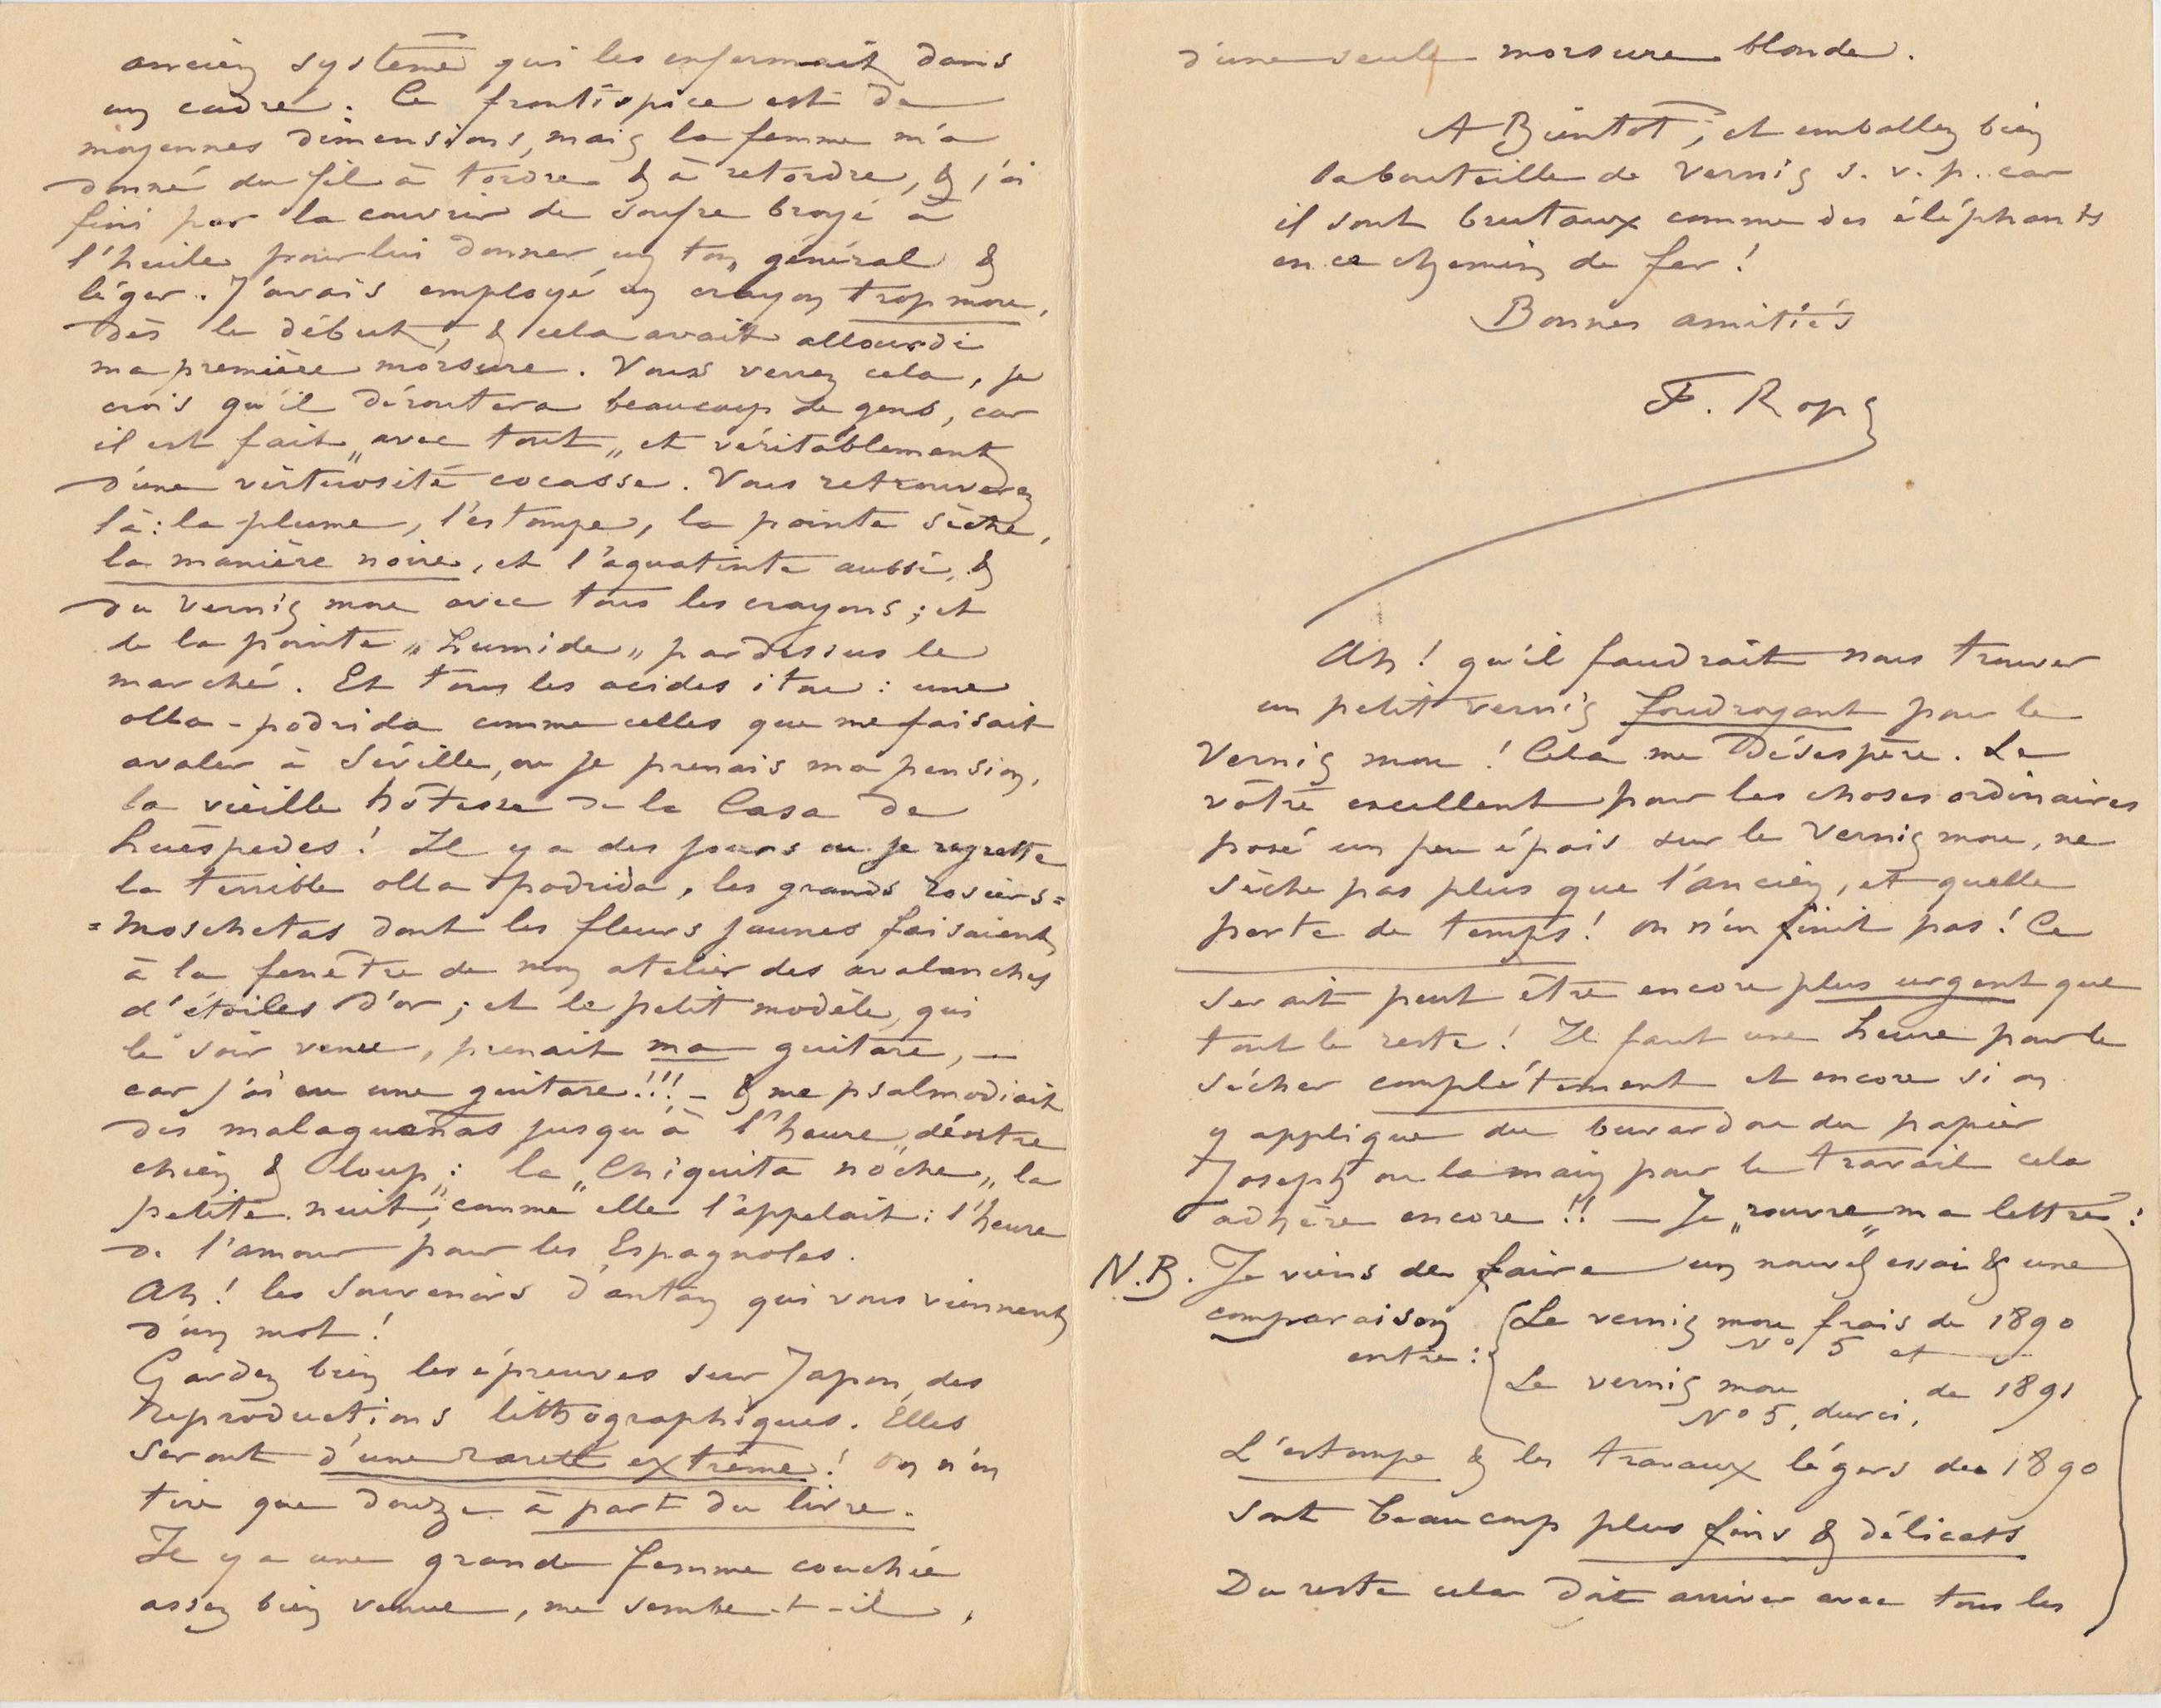 ancien système qui les enfermait dans
un cadre. Ce frontispice est de
moyennes dimensions, mais la femme m'a
donné du fil à tordre & à retordre, & j'ai
fini par la couvrir de soufre broyé à
l'huile pour lui donner un ton général &
léger. J'avais employé un crayon trop mou,
dès le début, & cela avait allourdi
ma première morsure. Vous verrez cela, je
crois qu'il déroutera beaucoup de gens, car
il est fait „avec tout„ et véritablement
d'une virtuosité cocasse. Vous retrouverez
là: la plume, l'estompe, la pointe sèche,
la manière noire, et l'aquatinte aussi, &
du vernis mou avec tous les crayons; et
de la pointe „humide„ pardessus le
marché. Et tous les acides itou: une
olla-podrida comme celles que me faisait
avaler à Séville, ou je prenais ma pension,
la vieille hôtesse de la Casa de
huéspedes! Il y a des jours ou je regrette
la terrible olla podrida, les grands rosiers=
=moschetas dont les fleurs jaunes faisaient
à la fenêtre de mon atelier des avalanches
d'étoiles d'or; et le petit modèle, qui
le soir venu, prenait ma guitare, —
car j'ai eu une guitare!!! — & me psalmodiait
des malagueñas jusqu'à l'heure „d'entre
chien & loup„: la „Chiquita noche„ la
petite nuit, comme elle l'appelait: l'heure
de l'amour pour les Espagnoles.
Ah! les souvenirs d'antan qui vous viennent
d'un mot!
Gardez bien les épreuves sur Japon, des
reproductions lithographiques. Elles
seront d'une rareté extrême! On n'en
tire que douze à part du livre.
Il y a une grande femme couchée
assez bien venue, me semble-t-il,
d'une seule morsure blonde.
A Bientôt, et emballez bien
la bouteille de Vernis s. v. p. car
il sont brutaux comme des éléphants
en ce chemin de fer!
Bonnes amitiés
F. Rops
Ah! qu'il faudrait nous trouver
un petit vernis foudroyant pour le
Vernis mou! Cela me désespère. Le
vôtre excellent pour les choses ordinaires
posé un peu épais sur le Vernis mou, ne
sèche pas plus que l'ancien, et quelle
perte de temps! on n'en finit pas! Ce
serait peut être encore plus urgent que
tout le reste! Il faut une heure pour le
sécher complétement et encore si on
y applique du buvard ou du papier
Joseph ou la main pour le travail cela
adhère encore!! — Je „rouvre„ ma lettre:
N.B. Je viens de faire un nouvel essai & une
comparaison {Le vernis mou frais de 1890
entre: N° 5 et
Le vernis mou de 1891
N° 5, durci,
L'estompe & les travaux légers de 1890
sont beaucoup plus fins & délicats
Du reste cela doit arriver avec tous les